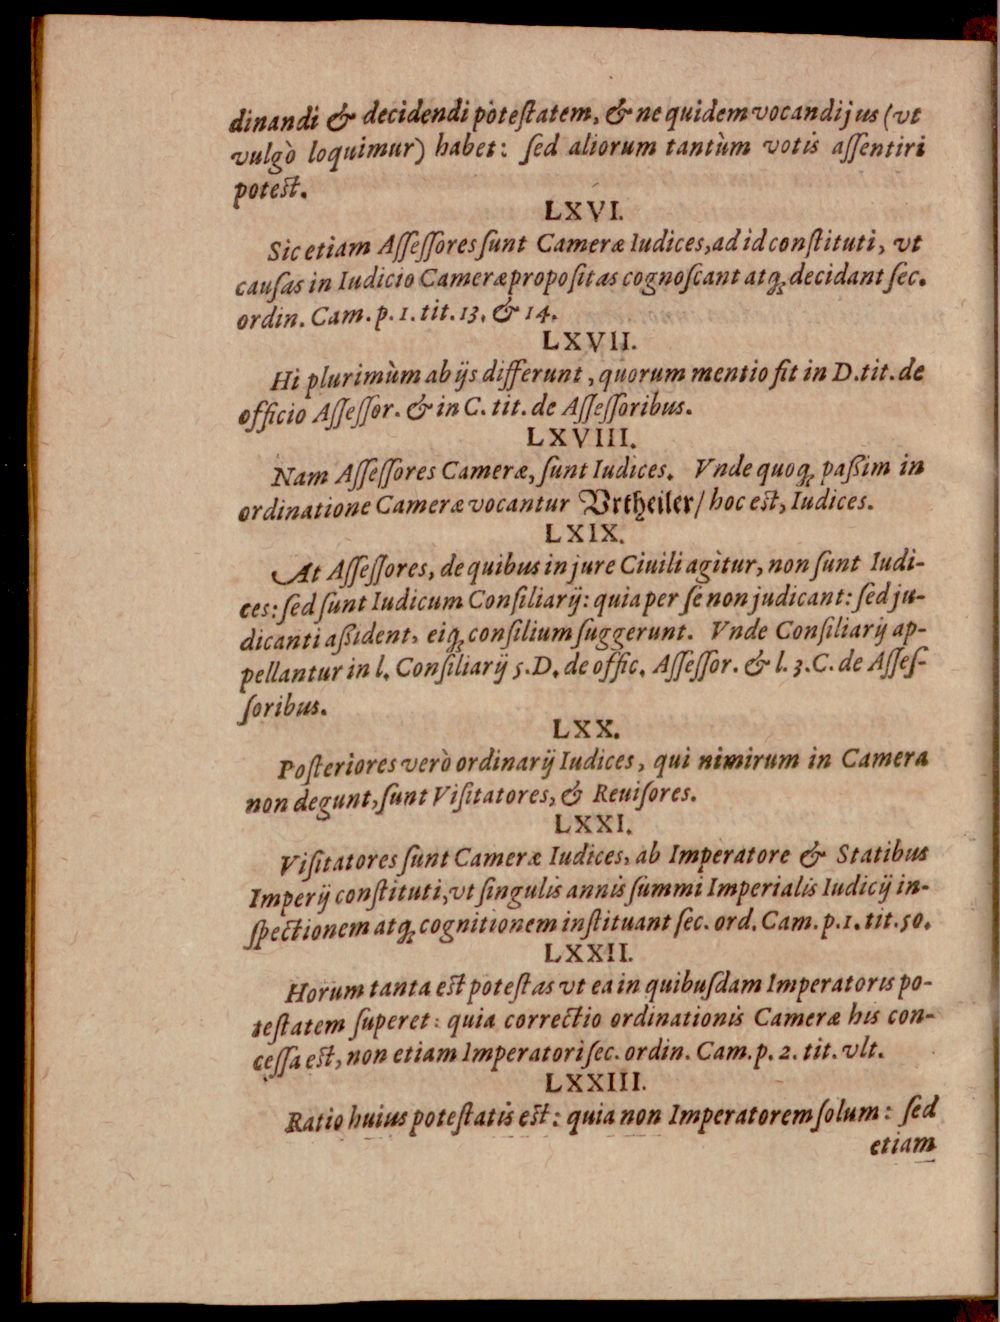 dinandi & decidendi potestatem, & ne quidem vocandi jus (vt
vulgò loquimur) habet: ſed aliorum tantùm votis aſſentiri
potest.
LXVI.
Sic etiam Aſſeſſores ſunt Cameræ Iudices, ad id conſtituti, vt
cauſas in Iudicio Cameræ propoſitas cognoſcant atq; decidant ſec.
ordin. Cam. p. 1. tit. 13. & 14.
LXVII.
Hi plurimùm ab ijs differunt, quorum mentio fit in D. tit. de
officio Aſſeſſor. & in C. tit. de Aſſeſſoribus.
LXVIII.
Nam Aſſeſſores Cameræ, ſunt Iudices. Vnde quoq; paßim in
ordinatione Cameræ vocantur Vrtheiler/ hoc est, Iudices.
LXIX.
At Aſſeſſores, de quibus in jure Ciuili agitur, non ſunt Iudi-
ces: ſed ſunt Iudicum Conſiliarij: quia per ſe non judicant: ſed ju-
dicanti aßident, eiq; conſilium ſuggerunt. Vnde Conſiliarij ap-
pellantur in l. Conſiliarij 5. D. de offic. Aſſeſſor. & l. 3. C. de Aſſeſ-
ſoribus.
LXX.
Poſteriores verò ordinarij Iudices, qui nimirum in Camera
non degunt, ſunt Viſitatores, & Reuiſores.
LXXI.
Viſitatores ſunt Cameræ Iudices, ab Imperatore & Statibus
Imperij conſtituti, vt ſingulis annis ſummi Imperialis Iudicij in-
ſpectionem atq; cognitionem inſtituant ſec. ord. Cam. p. 1. tit. 50.
LXXII.
Horum tanta est poteſtas vt ea in quibuſdam Imperatoris po-
teſtatem ſuperet: quia correctio ordinationis Cameræ his con-
ceſſa est, non etiam Imperatori ſec. ordin. Cam. p. 2. tit. vlt.
LXXIII.
Ratio huius poteſtatis est: quia non Imperatorem ſolum: ſed
etiam